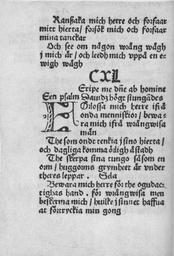 Ransaka mich herre och forfaar
mitt hierta / forsök mich och forfaar
mina tanckar
Och see om någon wäng wägh
j mich är / och leedh mich vppå en e-
wigh wägh
CXL
Eripe me dñe ab homine
Een psalm Dauidz högt siungandes
Frelossa mich herre ifrå
onda menniskior / bewa-
ra mich ifrå wrångwisa
män
The som ondt tenkia j sino hierta /
och dagliga komma ödigh åstadh
The skerpa sina tungo såsom en
orm / huggorms grymheet är vnder
theres leppar. Sela
Bewara mich herre för the ogudac-
tighas hand, för wrångwisa men
beskerma mich / huilke j sinnet haffua
at förryckia min gong